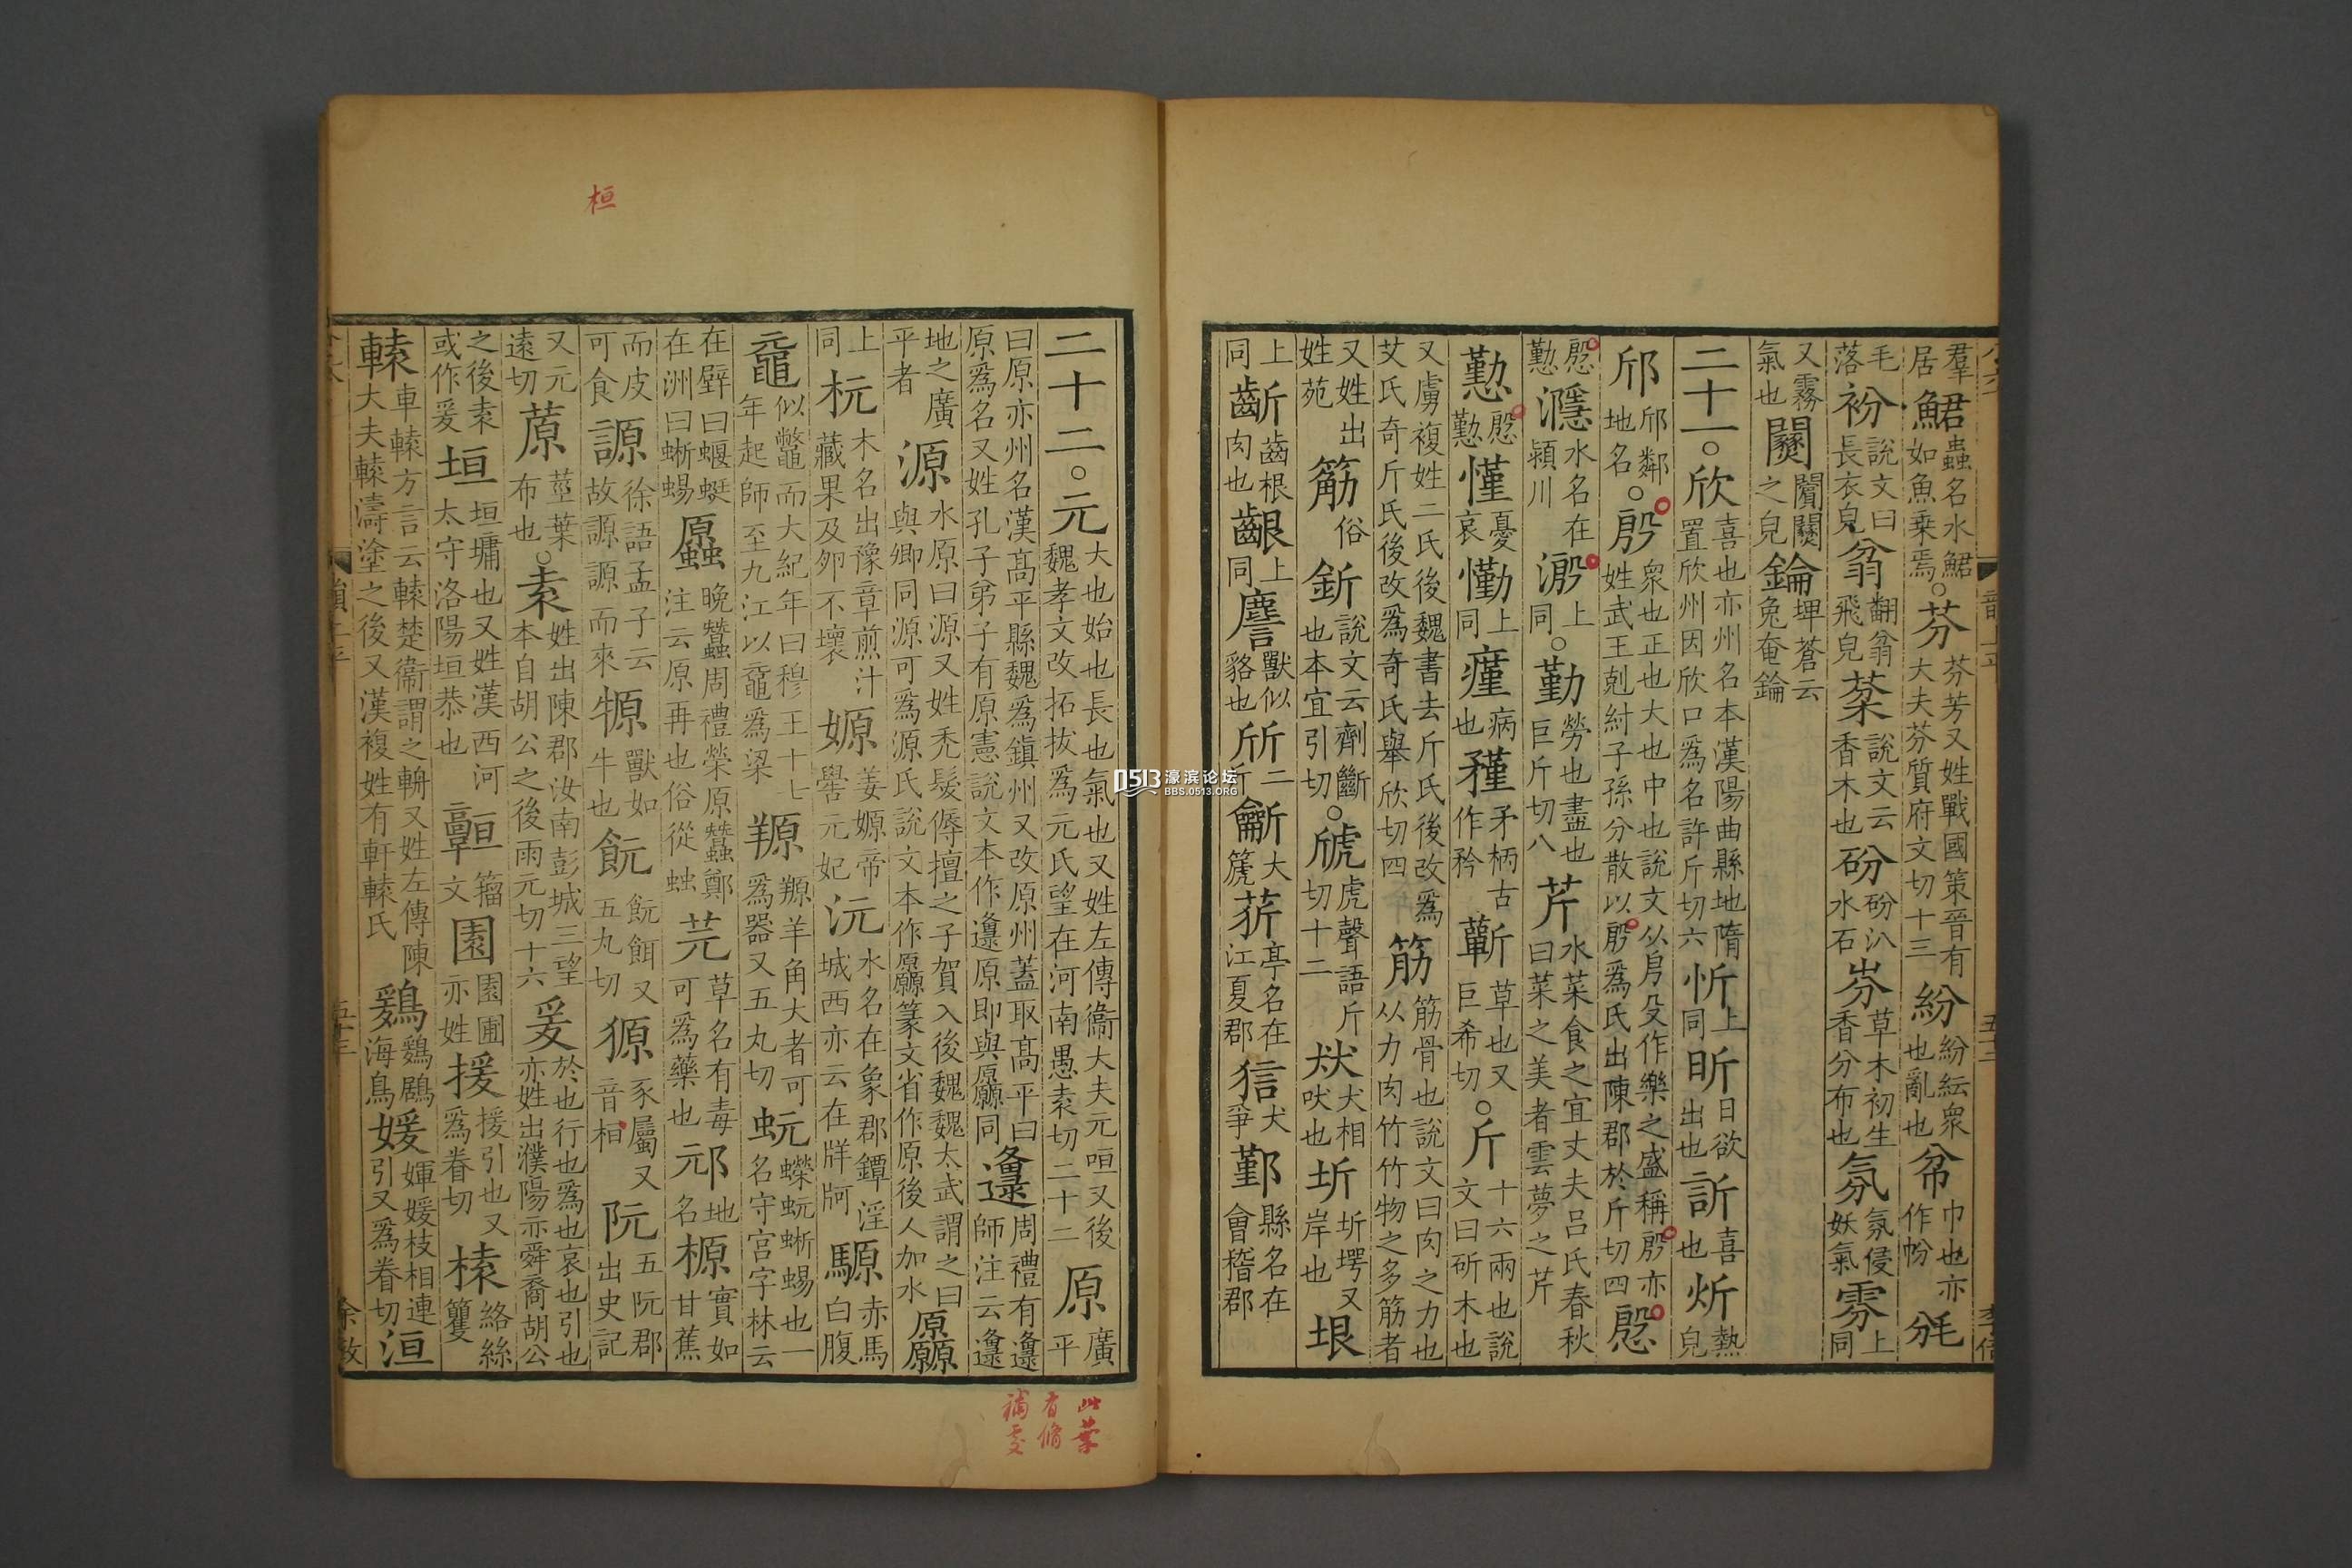 羣居鮶蟲名水鮶如魚乗焉。芬芬芳又姓戰國策晉有大夫芬質府文切十三紛紛紜衆也亂也帉巾也亦作㡏
毛落衯說文曰長衣皃翂翻翂飛皃棻說文云香木也砏砏汃水石㞣草木初生香分布也氛氛侵妖氣雰上同
又霧氣也之皃錀埤蒼云兔奄錀
二十一。欣喜也亦州名本漢陽曲縣地隋置欣州因欣口爲名許斤切六忻上同昕日欲出也訢喜也炘熱皃
邤邤鄰地名。殷衆也正也大也中也說文从㐆殳作樂之盛稱殷亦姓武王剋紂子孫分散以殷爲氏出陳郡於斤切四慇
慇懃濦水名在潁川溵上同。勤勞也盡也巨斤切八芹水菜食之宜丈夫呂氏春秋曰菜之美者雲夢之芹
懃慇懃慬憂哀懄上同瘽病也矜矛柄古作矜蘄草也又巨希切。斤十六兩也說文曰斫木也
又虜複姓二氏後魏書去斤氏後改爲艾氏奇斤氏後改爲奇氏舉欣切四筋筋骨也說文曰肉之力也从力肉竹竹物之多筋者
又姓出姓苑筯俗釿說文云劑斷也本宜引切。虓虎聲語斤切十二㹜犬相吠也圻圻堮又岸也垠
上同齗齒根肉也齦上同䜣獸似貉也斦二斤大箎䓄亭名在江夏郡狺犬爭鄞縣名在會稽郡
二十二。元大也始也長也氣也又姓左傳衞大夫元咺又後魏孝文改拓拔爲元氏望在河南愚袁切二十二原廣平
曰原亦州名漢髙平縣魏爲鎮州又改原州蓋取髙平曰原爲名又姓孔子弟子有原憲說文本作邍原即與厵同邍周禮有邍師注云邍
地之廣平者源水原曰源又姓禿髮傉檀之子賀入後魏魏太武謂之曰與卿同源可爲源氏說文本作厵篆文省作原後人加水厵
上同杬木名出豫章煎汁藏果及夘不壞嫄姜嫄帝嚳元妃沅水名在象郡鐔城西亦云在牂牁淫騵赤馬白腹
黿似鼈而大紀年曰穆王十七年起師至九江以黿爲梁羱羱羊角大者可爲器又五丸切蚖蠑蚖蜥蜴也一名守宮字林云
在壁曰蝘蜓在洲曰蜥蜴螈晚蠶周禮榮原蠶鄭注云原再也俗從䖵芫草名有毒可爲藥也邧地名榞實如甘蕉
而皮可食謜徐語孟子云故謜謜而來䭴獸如牛也䬧䬧餌又五丸切豲豕屬又音桓阮五阮郡出史記
又元遠切蒝莖葉布也。袁姓出陳郡汝南彭城三望本自胡公之後雨元切十六爰於也行也爲也哀也引也亦姓出濮陽亦舜裔胡公
之後袁或作爰垣垣墉也又姓漢西河太守洛陽垣恭也𩫖籀文園園圃亦姓援援引也又爲眷切榬絡絲籰
轅車轅方言云轅楚衞謂之輈又姓左傳陳大夫轅濤塗之後又漢複姓有軒轅氏鶢鶢鶋海鳥媛嬋媛枝相連引又爲眷切洹
桓
此葉
有脩
補處
0513濠滨论坛
BBS.0513.ORG